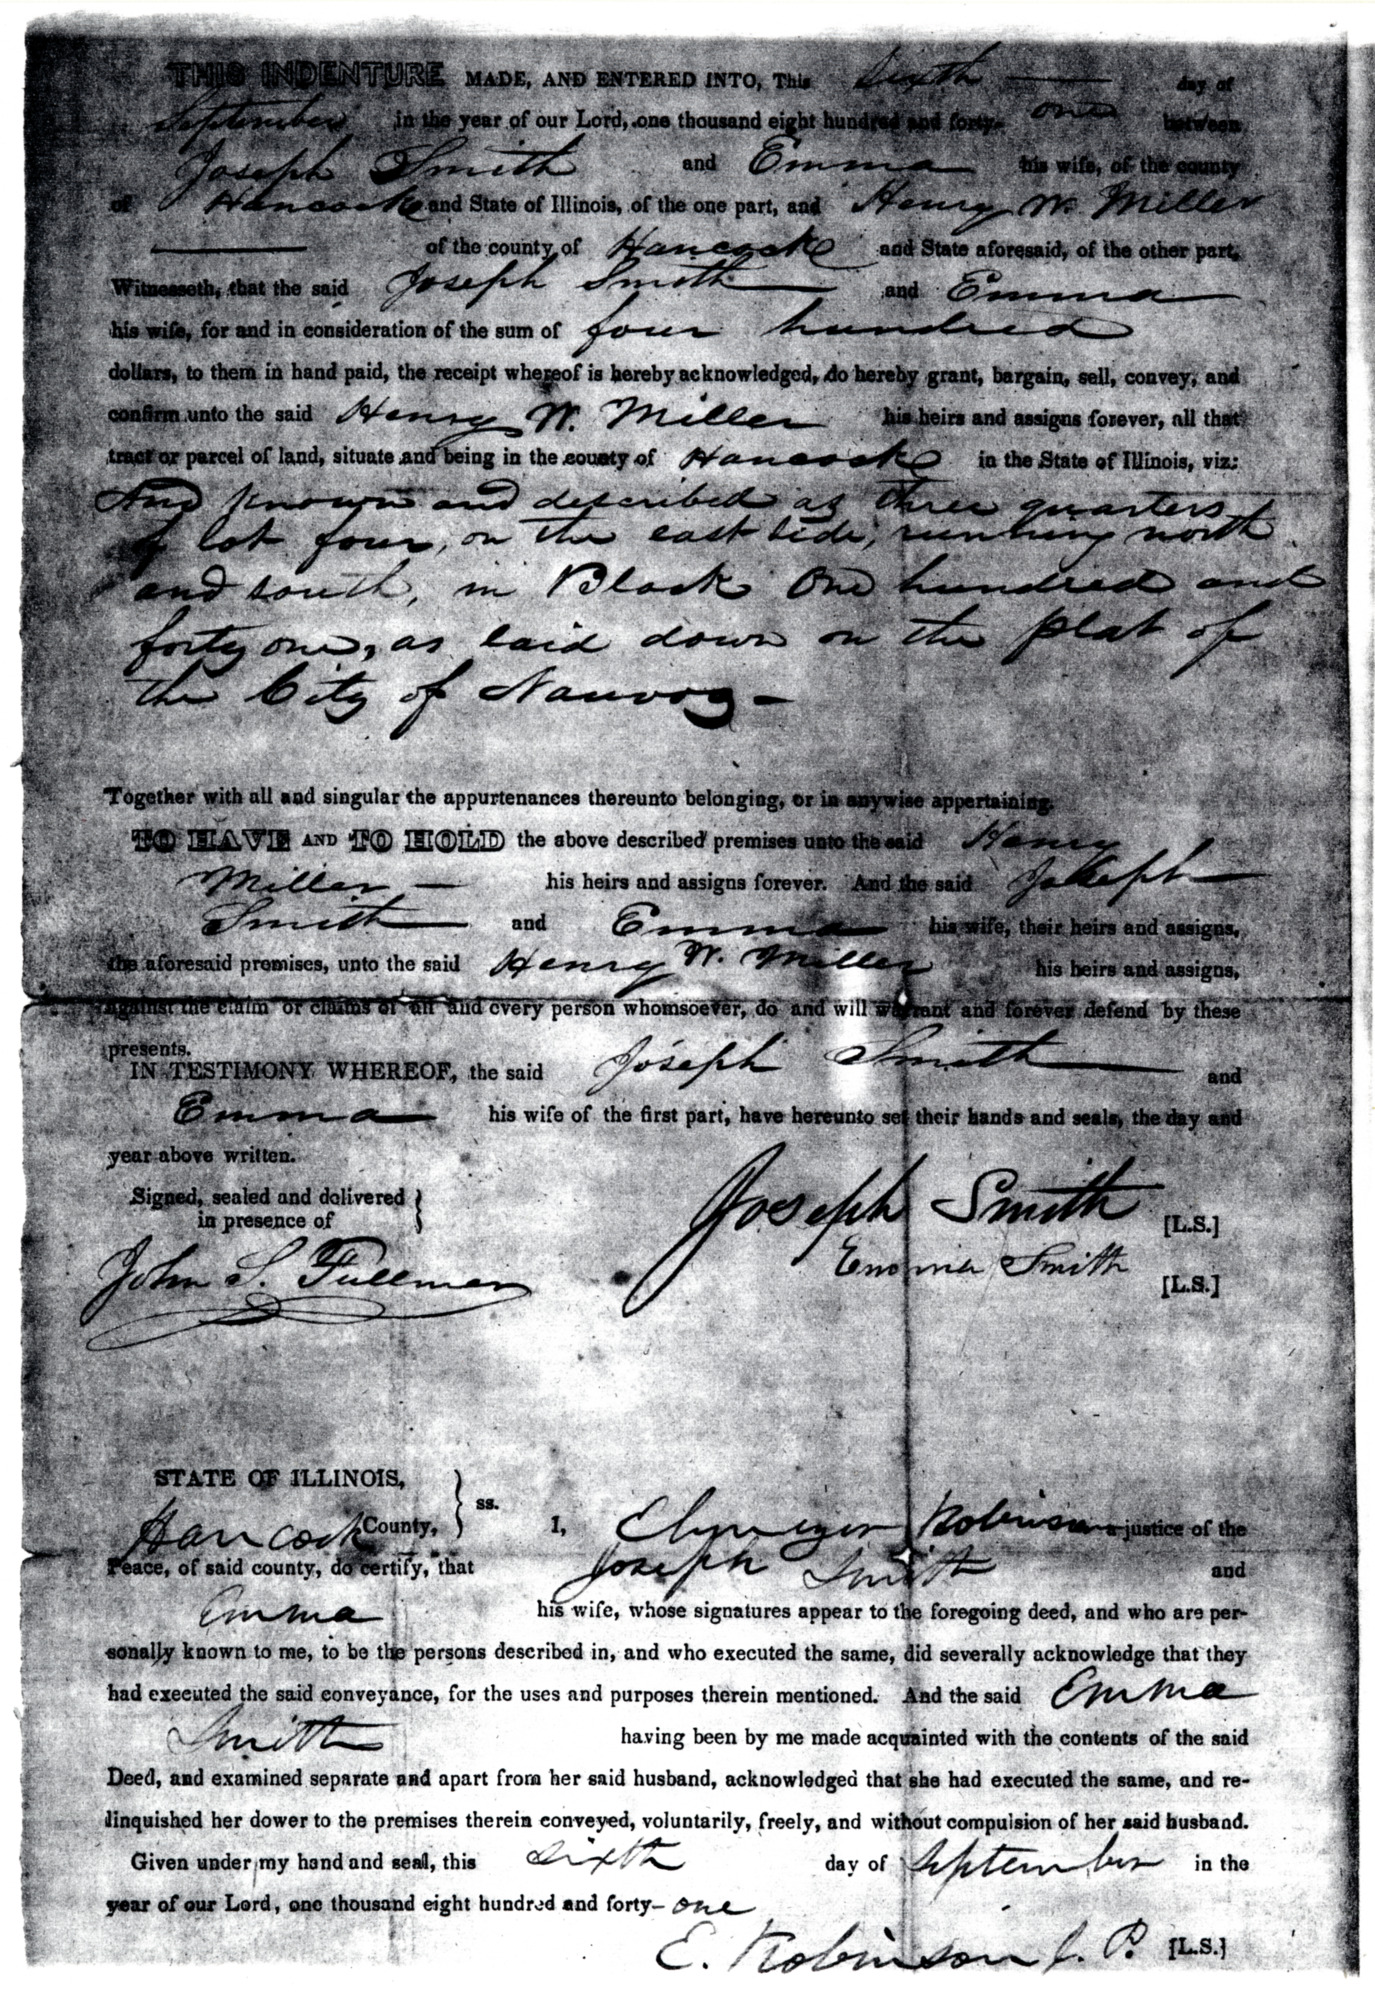 THIS INDENTURE MADE, AND ENTERED INTO, This Sixth day of
September in the year of our Lord, one thousand eight hundred and forty- one between
Joseph Smith and Emma his wife, of the county
of Hancock and State of Illinois, of the one part, and Henry W. Miller
of the county of Hancock and State aforesaid, of the other part,
Witnesseth, that the said Joseph Smith and Emma
his wife, for and in consideration of the sum of four hundred
dollars, to them in hand paid, the receipt whereof is hereby acknowledged, do hereby grant, bargain, sell, convey, and
confirm unto the said Henry W. Miller his heirs and assigns forever, all that
tract or parcel of land, situate and being in the county of Hancock in the State of Illinois, viz:
And known and described as three quarters
of lot four, on the east side, running north
and south, in Block One hundred and
forty one, as laid down on the plat of
the City of Nauvoo -
Together with all and singular the appurtenances thereunto belonging, or in anywise appertaining.
TO HAVE AND TO HOLD the above described premises unto the said Henry
Miller his heirs and assigns forever. And the said Joseph
Smith and Emma his wife, their heirs and assigns,
the aforesaid premises, unto the said Henry W. Miller his heirs and assigns,
against the claim or claims of all and every person whomsoever, do and will warrant and forever defend by these
presents.
IN TESTIMONY WHEREOF, the said Joseph Smith and
Emma his wife of the first part, have hereunto set their hands and seals, the day and
year above written.
Signed, sealed and delivered
in presence of
Joseph Smith [L.S.]
John S. Fullmer
Emma Smith [L.S.]
STATE OF ILLINOIS,
Hancock County, ss. I, Ebenezer Robinson a justice of the
Peace, of said county, do certify, that Joseph Smith and
Emma his wife, whose signatures appear to the foregoing deed, and who are per-
sonally known to me, to be the persons described in, and who executed the same, did severally acknowledge that they
had executed the said conveyance, for the uses and purposes therein mentioned. And the said Emma
Smith having been by me made acquainted with the contents of the said
Deed, and examined separate and apart from her said husband, acknowledged that she had executed the same, and re-
linquished her dower to the premises therein conveyed, voluntarily, freely, and without compulsion of her said husband.
Given under my hand and seal, this sixth day of September in the
year of our Lord, one thousand eight hundred and forty- one
E. Robinson J. P. [L.S.]